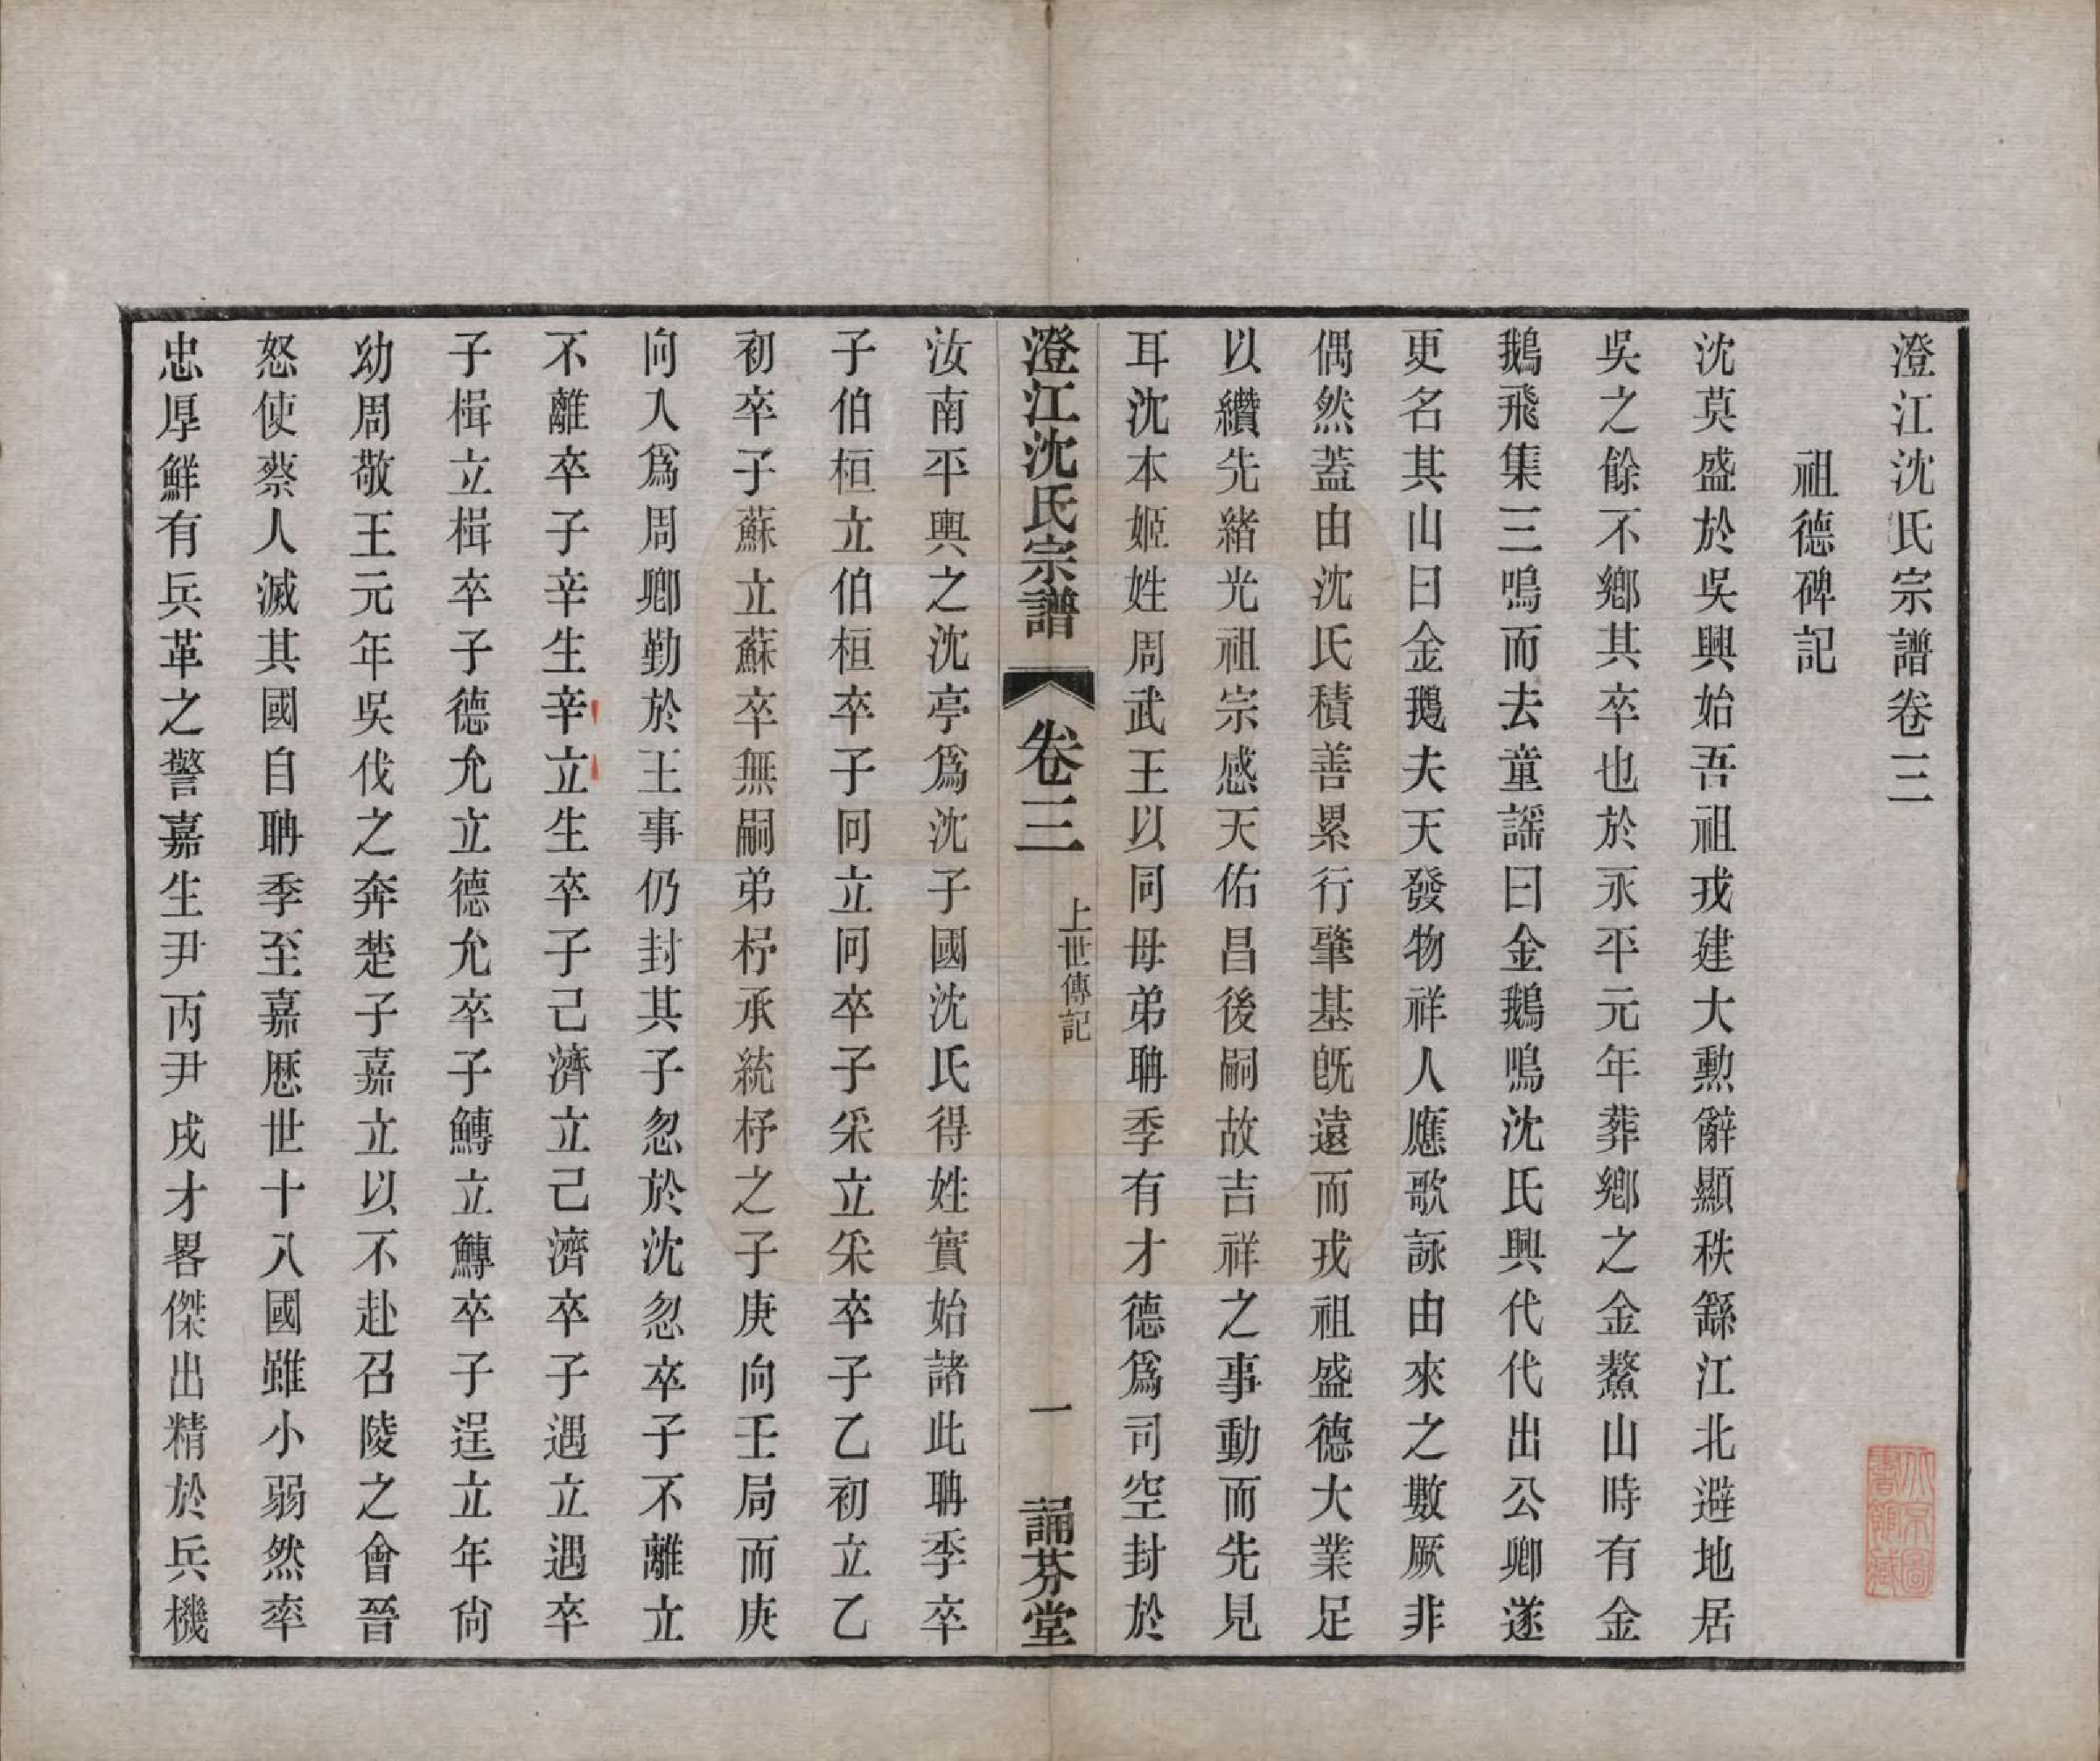 澄江沈氏宗譜卷三
祖德碑記
沈莫盛於吳興始吾祖戎建大勲辭顯秩繇江北避地居
吳之餘不鄉其卒也於永平元年葬鄉之金鰲山時有金
鵝飛集三鳴而去童謡曰金鵝鳴沈氏興代代出公卿遂
更名其山曰金鵝夫天發物祥人應歌詠由來之數厥非
偶然蓋由沈氏積善累行肇基旣遠而戎祖盛德大業足
以纘先緒光祖宗感天佑昌後嗣故吉祥之事動而先見
耳沈本姬姓周武王以同母弟聃季有才德爲司空封於
澄江沈氏宗譜 卷三 上世傳記 一 誦芬堂
汝南平輿之沈亭爲沈子國沈氏得姓實始諸此聃季卒
子伯桓立伯桓卒子囘立囘卒子采立采卒子乙初立乙
初卒子蘇立蘇卒無嗣弟杼承統杼之子庚向王局而庚
向入爲周卿勤於王事仍封其子忽於沈忽卒子不離立
不離卒子辛生辛立生卒子己濟立己濟卒子遇立遇卒
子楫立楫卒子德允立德允卒子鱄立鱄卒子逞立年尙
幼周敬王元年吳伐之奔楚子嘉立以不赴召陵之會晉
怒使蔡人滅其國自聃季至嘉歷世十八國雖小弱然率
忠厚鮮有兵革之警嘉生尹丙尹戌才畧傑出精於兵機